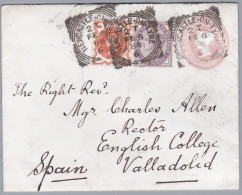 NEWCASTLE-ON-TYNE
The Right Revd.
Mgr. Charles Allen
Rector
English College
Valladolid
Spain